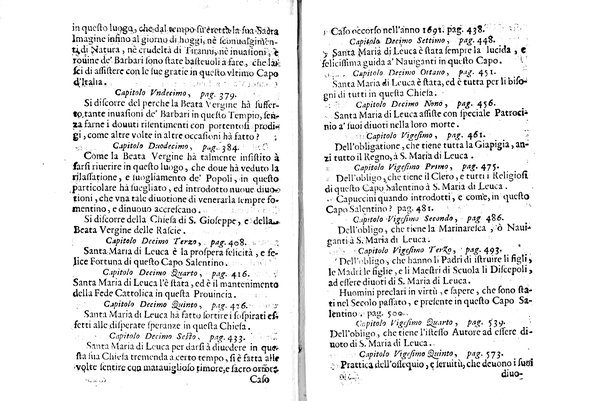 in questo luogo, che dal tempo si eretto la sua Sacra
Imagine infino al giorno di hoggi, nè sconuolgimen-
ti di Natura, nè crudeltà di Tiranni, nè inuasioni, e
rouine de' Barbari sono state basteuoli a fare, che la-
sci di assistere con le sue gratie in questo vltimo Capo
d'Italia.
Capitolo Vndecimo, pag. 379.
Si discorre del perche la Beata Vergine hà suffer-
to, tante inuasioni de' Barbari in questo Tempio, sen-
za farne i douuti risentimenti con portentosi prodi-
gi, come altre volte in altre occasioni hà fatto?
Capitolo Duodecimo, pag. 384.
Come la Beata Vergine hà talmente insistito à
farsi riuerire in questo luogo, che doue hà veduto la
rilassatione, e suogliamento de' Popoli, in questo
particolare hà suegliato, ed introdotto nuoue diuo-
tioni, che vna tale diuotione di venerarla sempre so-
mentino, e diuengano accrescano.
Si discorre della Chiesa di S. Gioseppe, e della
Beata Vergine delle Rascie.
Capitolo Decimo Terzo, pag. 408.
Santa Maria di Leuca è la prospera felicità, e fe-
lice Fortuna di questo Capo Salentino.
Capitolo Decimo Quarto, pag. 416.
Santa Maria di Leuca l'è stata, ed è il mantenimento
della Fede Cattolica in questa Prouincia.
Capitolo Decimo Quinto, pag. 426.
Santa Maria di Leuca hà fatto sortire i sospirati ef-
fetti alle disperate speranze in questa Chiesa.
Capitolo Decimo Sesto, pag. 433.
Santa Maria di Leuca per darsi à diuedere in que-
sta sua Chiesa tremenda a certo tempo, si è fatta alle
volte sentire con marauiglioso timore, e sacro orrore.
Caso
Caso occorso nell'anno 1691. pag. 438.
Capitolo Decimo Settimo, pag. 448.
Santa Maria di Leuca è stata sempre la lucida, e
felicissima guida a' Nauiganti in questo Capo.
Capitolo Decimo Ottauo, pag. 451.
Santa Maria di Leuca è stata, ed è tutta per li biso-
gni di tutti in questa Chiesa.
Capitolo Decimo Nono, pag. 456.
Santa Maria di Leuca assiste con speciale Patroci-
nio a' suoi diuoti nella loro morte.
Capitolo Vigesimo, pag. 461.
Dell'obligatione, che tiene tutta la Giapigia, an-
zi tutto il Regno, à S. Maria di Leuca.
Capitolo Vigesimo Primo, pag. 475.
Dell'obligo, che tiene il Clero, e tutti i Religiosi
di questo Capo Salentino à S. Maria di Leuca.
Capuccini quando introdotti, e come, in questo
Capo Salentino? pag. 481.
Capitolo Vigesimo Secondo, pag. 486.
Dell'obligo, che tiene la Marinaresca, ò Naui-
ganti à S. Maria di Leuca.
Capitolo Vigesimo Terzo, pag. 493.
Dell'obligo, che hanno li Padri di istruire li figli,
le Madri le figlie, e li Maestri di Scuola li Discepoli,
ad essere diuoti di S. Maria di Leuca.
Huomini preclari in virtù, e sapere, che sono stati
nel Secolo passato, e presente in questo Capo Sa-
lentino. pag. 500.
Capitolo Vigesimo Quarto, pag. 539.
Dell'obligo, che tiene l'istesso Autore ad essere di-
uoto di S. Maria di Leuca.
Capitolo Vigesimo Quinto, pag. 573.
Prattica dell'ossequio, e seruitù, che deuono i suoi
diuo-